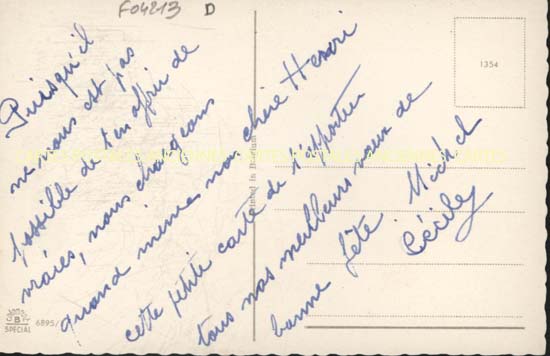 F04213 D
1354
Puisqu'il
ne nous est pas
possible de t'en offrir de
vraies, nous chargeons
quand même mon cher Henri
cette petite carte de t'apporter
tous nos meilleurs vœux de
bonne fête Michel
Cécile
Printed in Belgium
SPECIAL
6895/